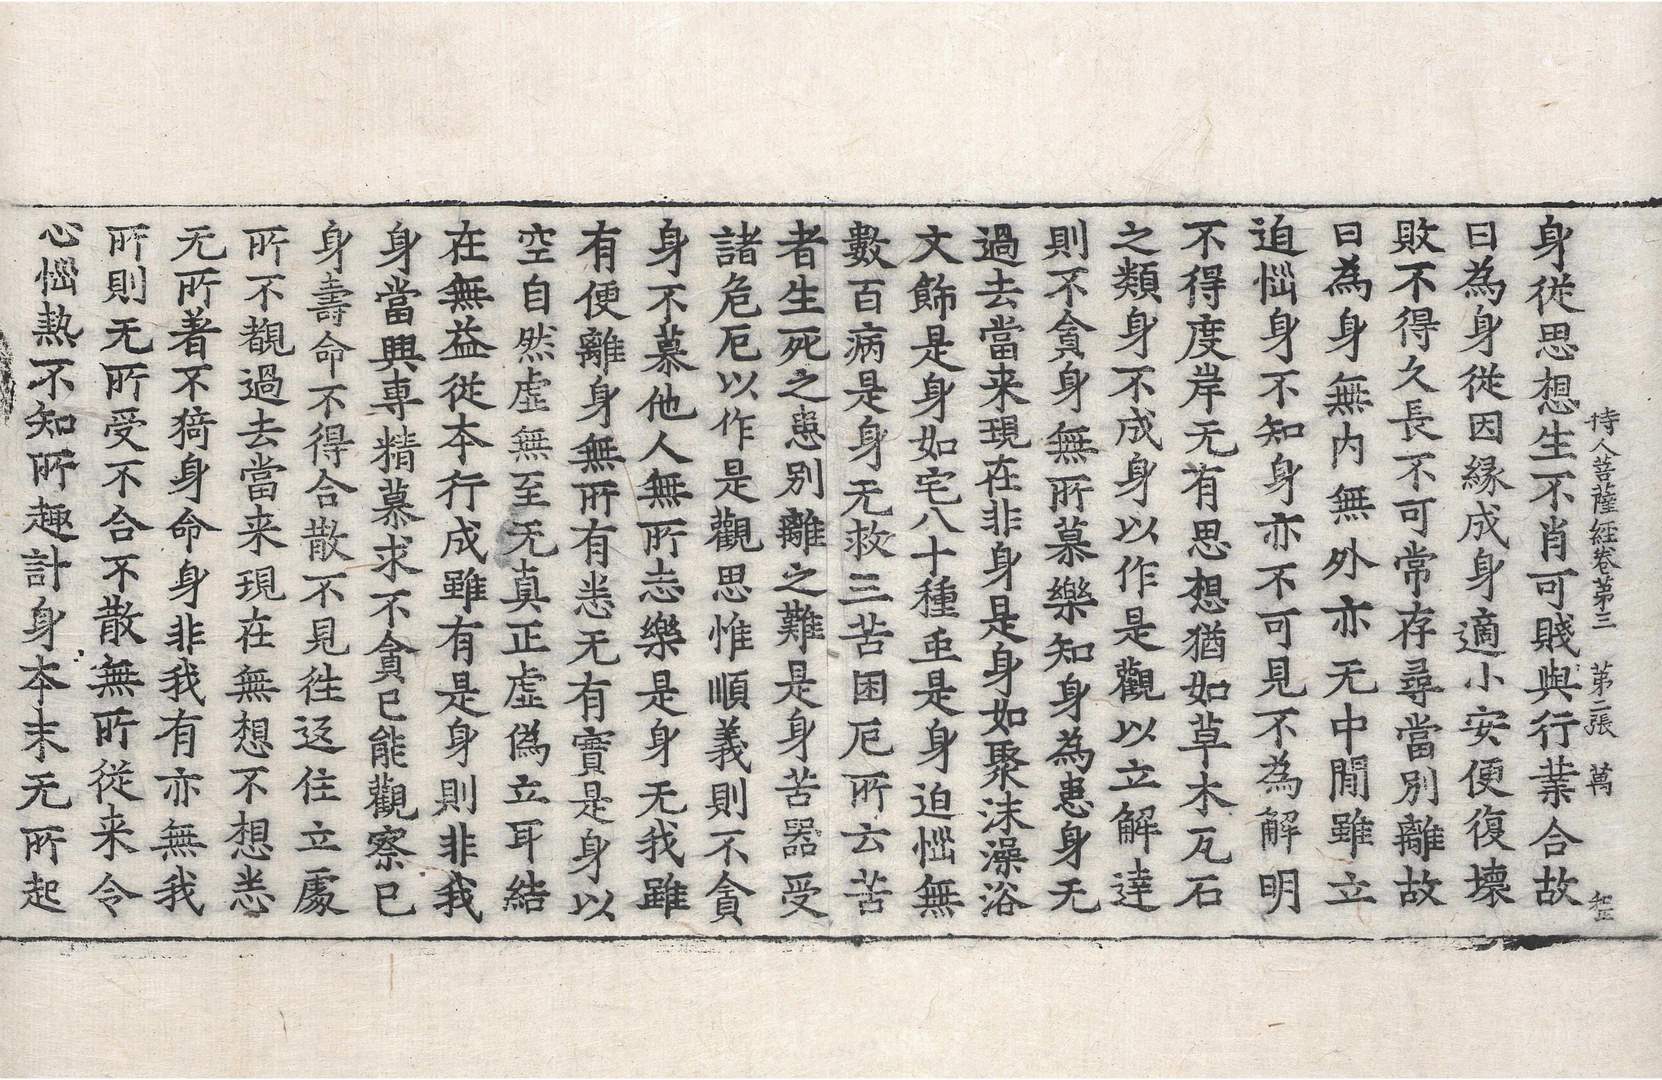 持人菩薩經卷第三 第二張 萬
身從思想生不肖可賤與行業合故
曰為身從因緣成身適小安便復壞
敗不得久長不可常存尋當別離故
曰為身無內無外亦无中間雖立
迫惱身不知身亦不可見不為解明
不得度岸无有思想猶如草木瓦石
之類身不成身以作是觀以立解達
則不貪身無所慕樂知身為患身无
過去當来現在非身是身如聚沫澡浴
文飾是身如宅八十種虫是身迫惱無
數百病是身无救三苦困厄所云苦
者生死之患別離之難是身苦器受
諸危厄以作是觀思惟順義則不貪
身不慕他人無所志樂是身无我雖
有便離身無所有悉无有實是身以
空自然虛無至无真正虛偽立耳結
在無益從本行成雖有是身則非我
身當興專精慕求不貪已能觀察已
身壽命不得合散不見往返住立處
所不覩過去當来現在無想不想悉
无所著不猗身命身非我有亦無我
所則无所受不合不散無所從来令
心惱熱不知所趣計身本末无所起